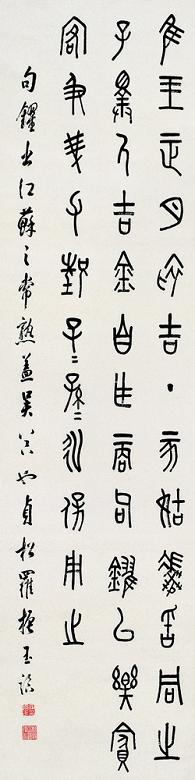 隹王正月初吉丁亥姑馮昏同之
子擇厥吉金自乍商句鑃以樂賓
客及我父兄子=孫=永保用之
句鑃出江蘇之常熟蓋吳器也貞松羅振玉臨